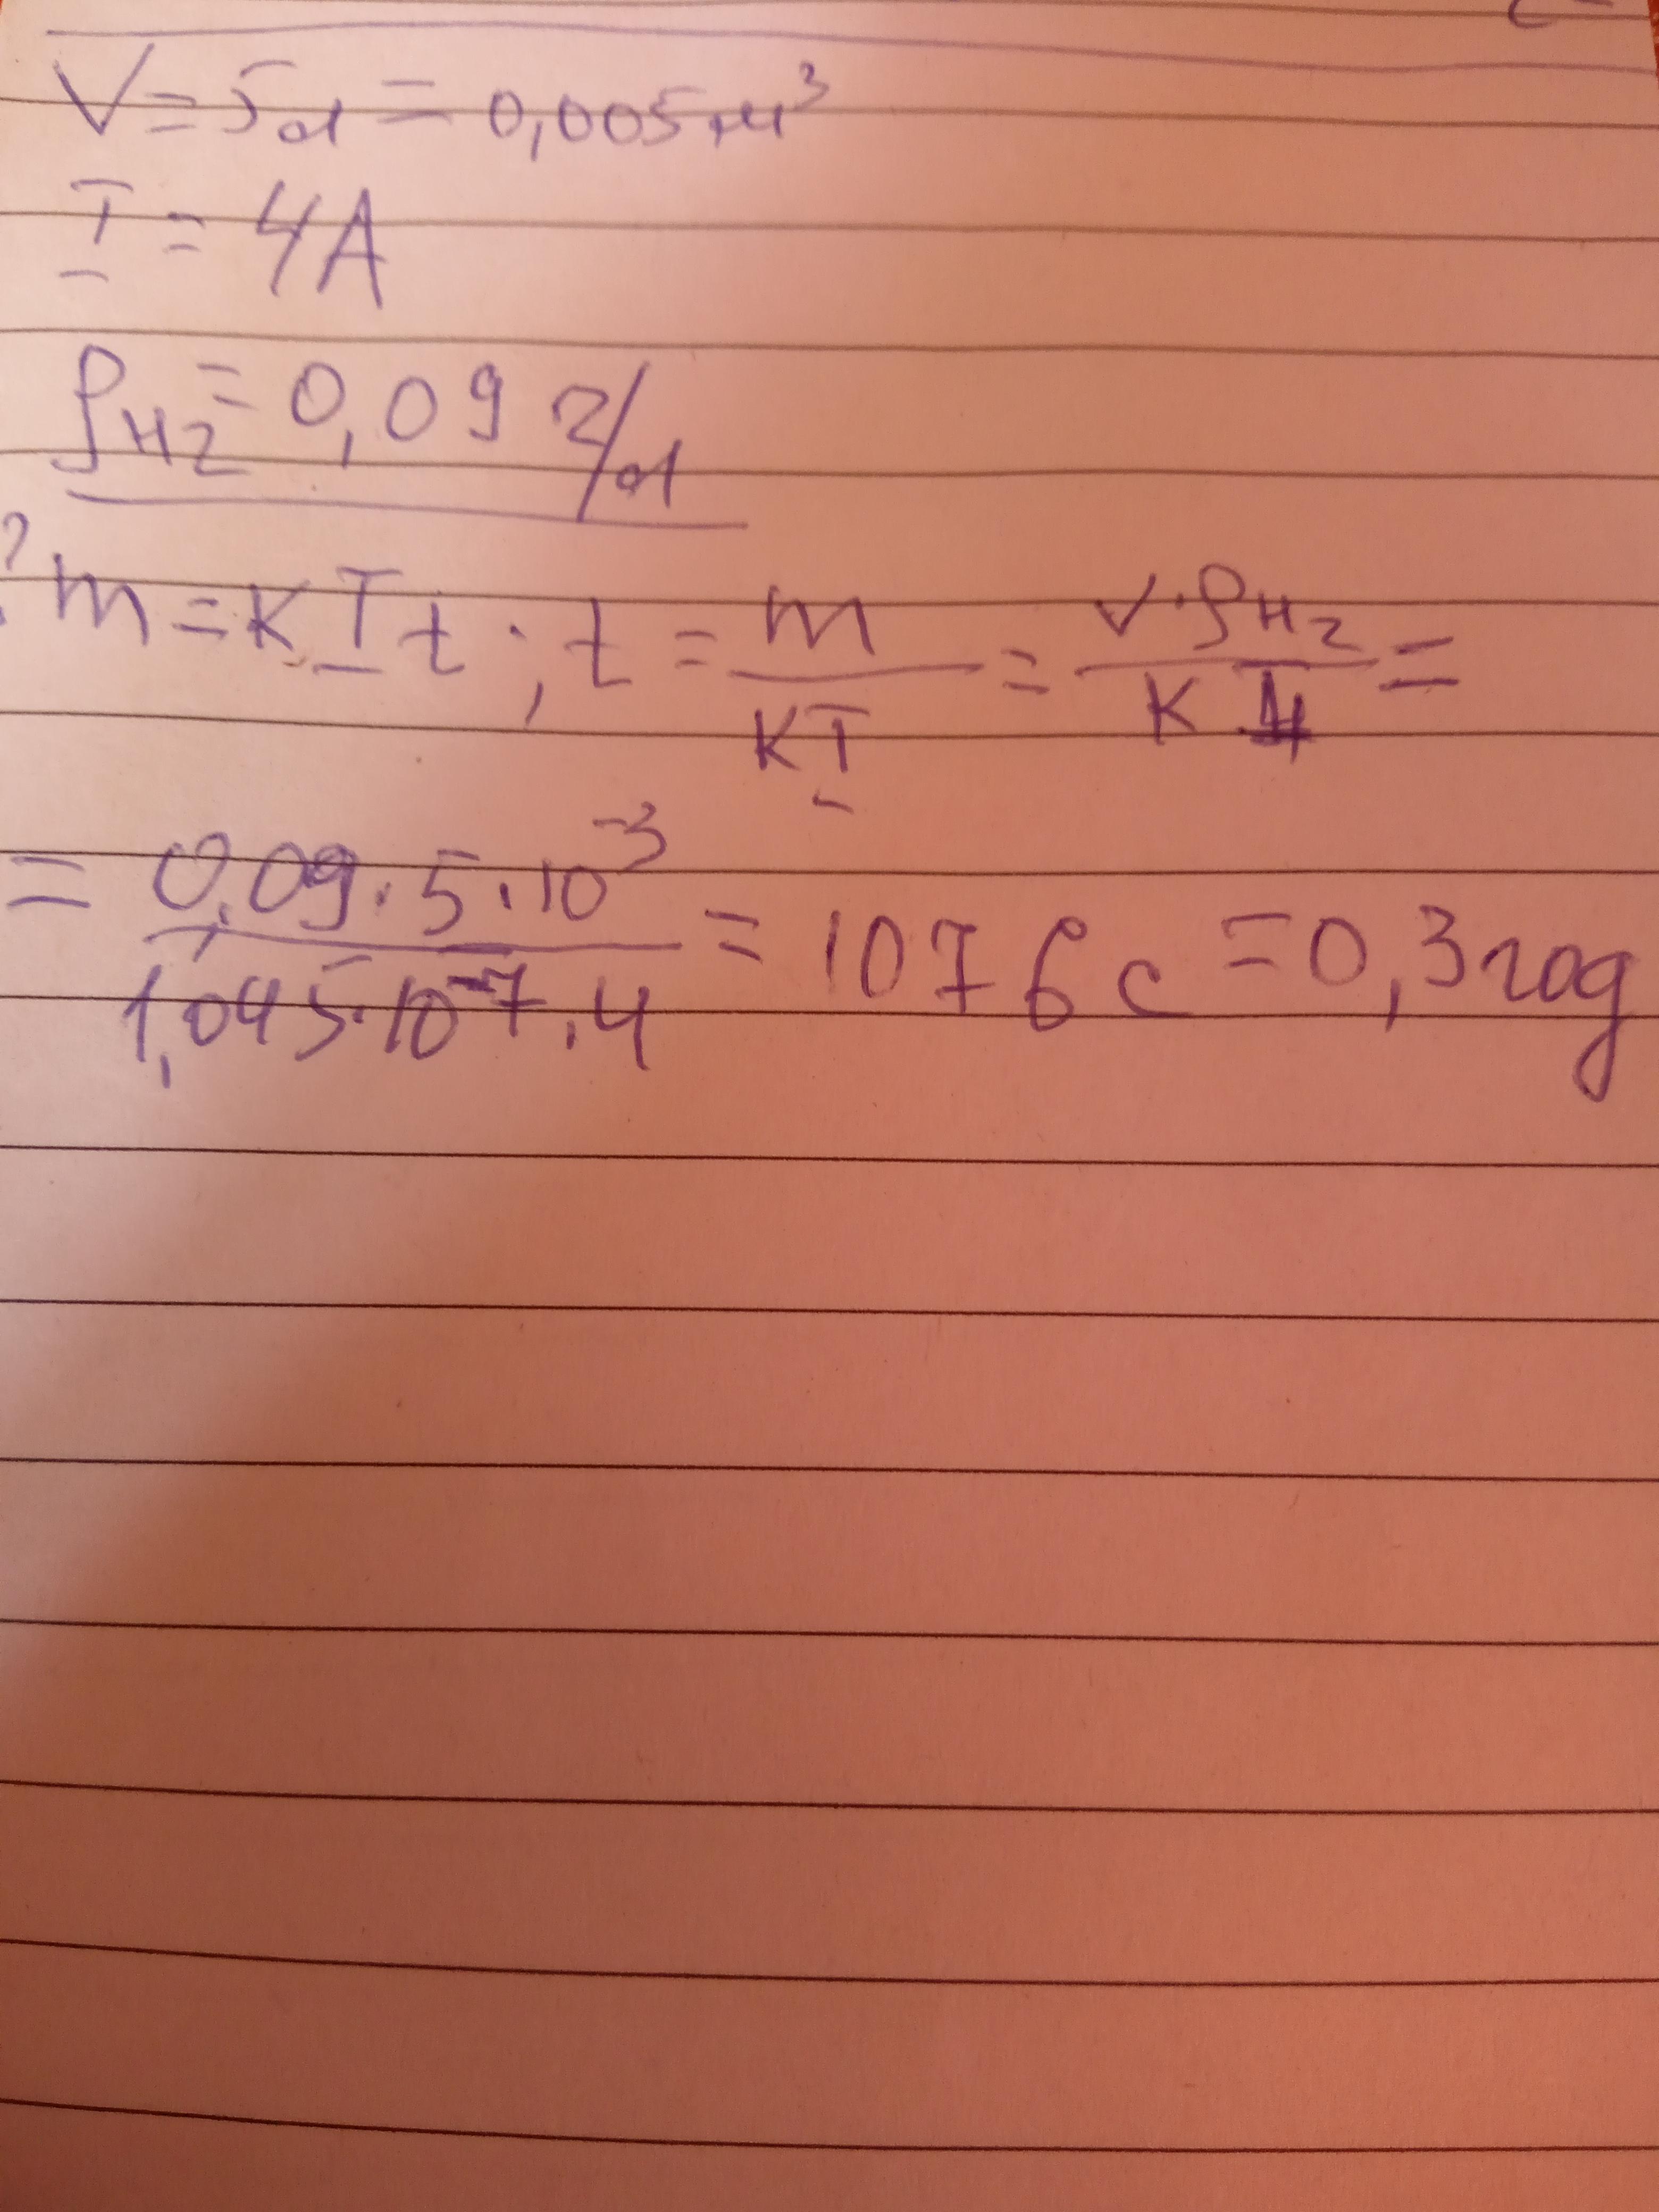 V = 5л = 0,005 м³
I = 4А
ρH2 = 0,09 г/л
? m = K I t ; t = m / KI = V · ρH2 / K I =
= 0,09 · 5 · 10⁻³ / 1,045 · 10⁻⁷ · 4 = 1076 с = 0,3 год